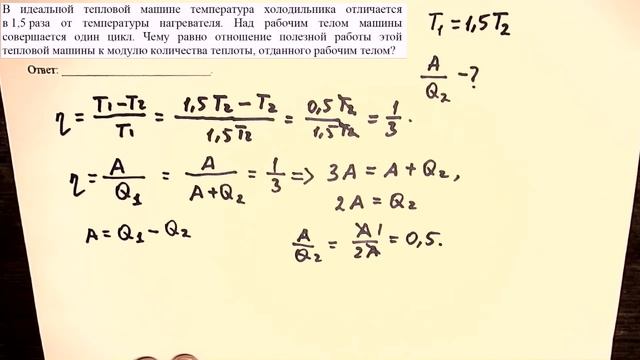 В идеальной тепловой машине температура холодильника отличается
в 1,5 раза от температуры нагревателя. Над рабочим телом машины
совершается один цикл. Чему равно отношение полезной работы этой
тепловой машины к модулю количества теплоты, отданного рабочим телом?
Ответ: ____________________.
T₁ = 1,5T₂
A/Q₂ - ?
η = (T₁ - T₂)/T₁ = (1,5T₂ - T₂)/1,5T₂ = 0,5T₂/1,5T₂ = 1/3.
η = A/Q₁ = A/(A + Q₂) = 1/3 => 3A = A + Q₂,
2A = Q₂
A = Q₁ - Q₂
A/Q₂ = A1/2A = 0,5.